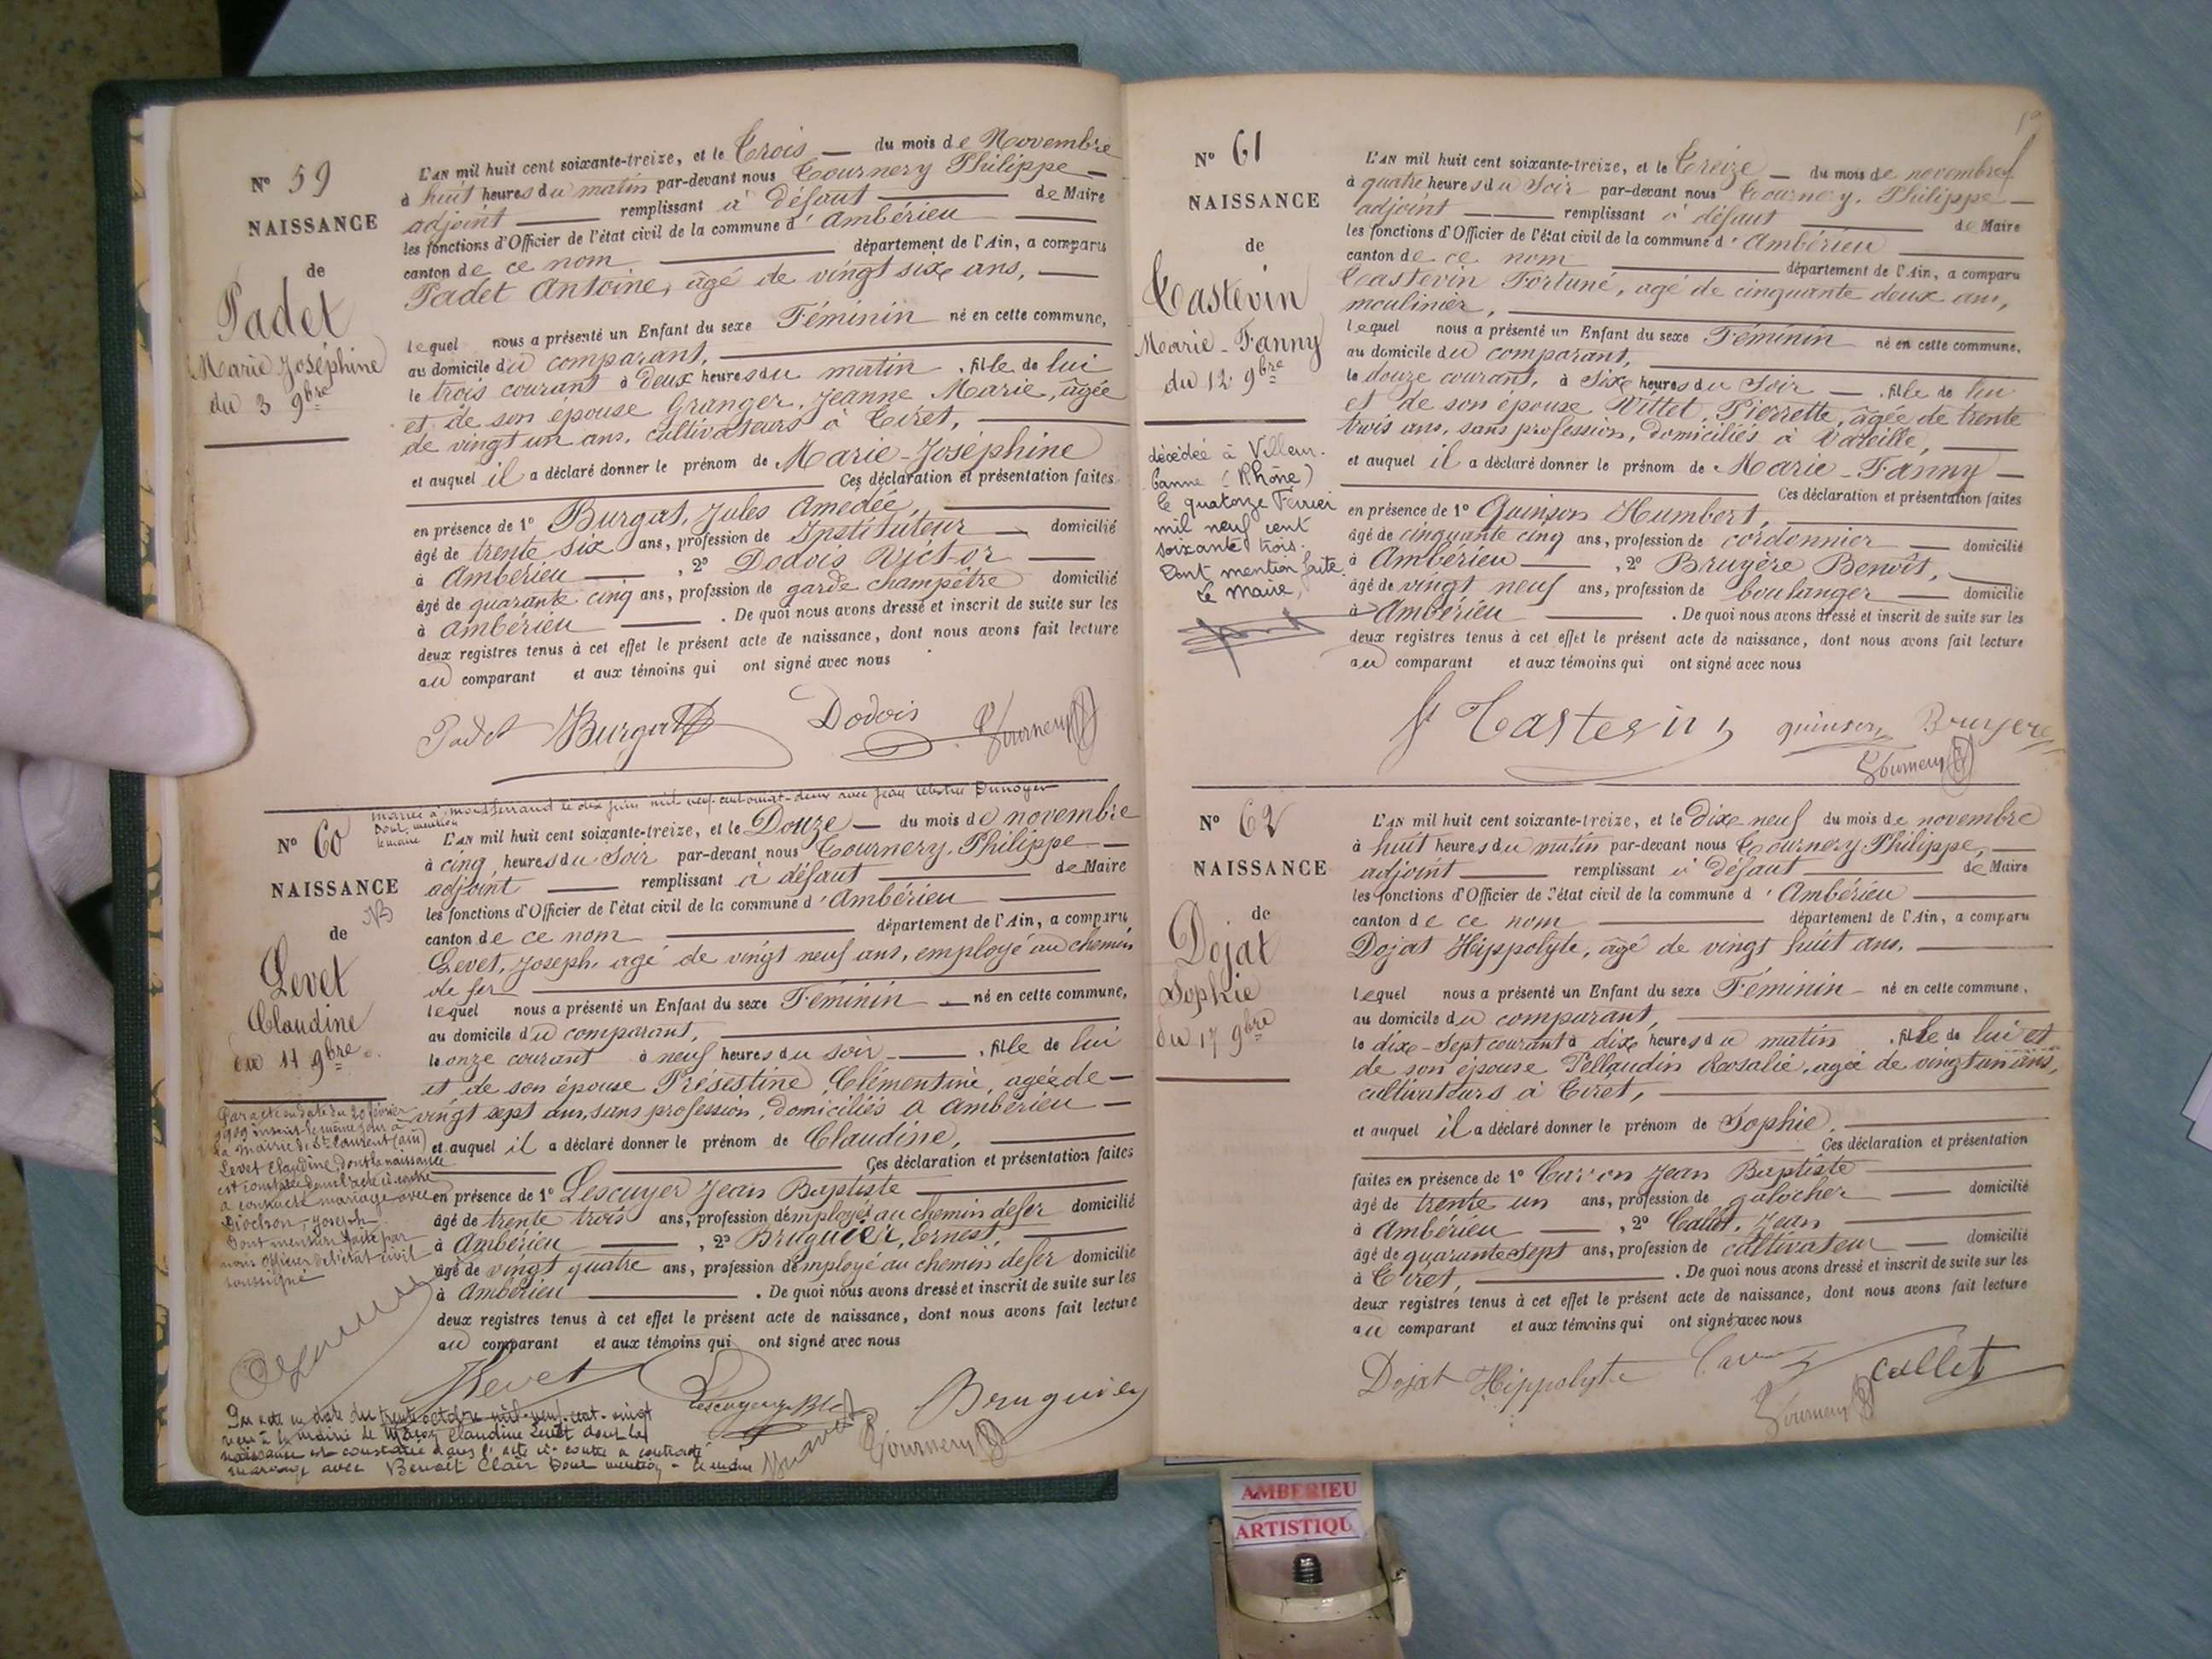 N° 59
NAISSANCE
de
Padet
Marie Joséphine
du 3 9bre
L'AN mil huit cent soixante-treize, et le Trois — du mois de Novembre
à huit heures du matin par-devant nous Tournery Philippe —
adjoint — remplissant à défaut — de Maire
les fonctions d'Officier de l'état civil de la commune d'Ambérieu —
canton de ce nom — département de l'Ain, a comparu
Padet Antoine, âgé de vingt six ans, —
lequel nous a présenté un Enfant du sexe Féminin né en cette commune,
au domicile du comparant, —
le trois courant à deux heures du matin , fille de lui
et de son épouse Granger, Jeanne Marie, âgée
de vingt un ans, cultivateurs à Tiret, —
et auquel il a déclaré donner le prénom de Marie-Joséphine
— Ces déclaration et présentation faites
en présence de 1° Burgat, Jules Amédée, —
âgé de trente six ans, profession de Instituteur — domicilié
à Ambérieu — , 2° Dodois Victor —
âgé de quarante cinq ans, profession de garde champêtre domicilié
à Ambérieu — . De quoi nous avons dressé et inscrit de suite sur les
deux registres tenus à cet effet le présent acte de naissance, dont nous avons fait lecture
au comparant et aux témoins qui ont signé avec nous
Padet Burgat Dodois Tournery
mariée à Montferrand le dix juin mil neuf cent vingt-deux avec Jean Dunoyer
Dont mention
le maire
N° 60
NAISSANCE
de
Levet
Claudine
du 11 9bre
L'AN mil huit cent soixante-treize, et le Douze — du mois de novembre
à cinq heures du Soir par-devant nous Tournery, Philippe —
adjoint — remplissant à défaut — de Maire
les fonctions d'Officier de l'état civil de la commune d'Ambérieu —
canton de ce nom — département de l'Ain, a comparu
Levet, Joseph, âgé de vingt neuf ans, employé au chemin
de fer —
lequel nous a présenté un Enfant du sexe Féminin — né en cette commune,
au domicile du comparant, —
le onze courant à neuf heures du soir — , fille de lui
et de son épouse Présestine, Clémentine, agée de —
vingt sept ans, sans profession, domiciliés a Ambérieu —
et auquel il a déclaré donner le prénom de Claudine, —
— Ces déclaration et présentation faites
en présence de 1° Lescuyer Jean Baptiste —
âgé de trente trois ans, profession d'employé au chemin de fer domicilié
à Ambérieu — , 2° Bruguier, Ernest, —
âgé de vingt quatre ans, profession d'employé au chemin de fer domicilié
à Ambérieu — . De quoi nous avons dressé et inscrit de suite sur les
deux registres tenus à cet effet le présent acte de naissance, dont nous avons fait lecture
au comparant et aux témoins qui ont signé avec nous
Par acte en date du 20 février
1909 inscrit le même jour à
la mairie de St Laurent (Ain)
Levet Claudine dont la naissance
est constatée dans l'acte ci-contre
a contracté mariage avec
Diochon, Joseph
Dont mention faite par
nous Officier de l'état civil
soussigné
Levet Lescuyer Bruguier
Tournery
Par acte en date du trente octobre mil-neuf-cent-vingt
à la mairie de Mâcon Claudine Levet dont la
naissance est constatée dans l'acte ci-contre a contracté
mariage avec Benoît Clair Dont mention - le maire
N° 61
NAISSANCE
de
Castevin
Marie-Fanny
du 12 9bre
décédée à Villeur-
banne (Rhône)
le quatorze Fevrier
mil neuf cent
soixante trois.
Dont mention faite.
Le Maire,
L'AN mil huit cent soixante-treize, et le Treize — du mois de novembre
à quatre heures du Soir par-devant nous Tournery, Philippe —
adjoint — remplissant à défaut — de Maire
les fonctions d'Officier de l'état civil de la commune d'Ambérieu —
canton de ce nom — département de l'Ain, a comparu
Castevin Fortuné, âgé de cinquante deux ans,
moulinier, —
lequel nous a présenté un Enfant du sexe Féminin né en cette commune,
au domicile du comparant, —
le douze courant, à Six heures du Soir — , fille de lui
et de son épouse Vittet, Pierrette, âgée de trente
trois ans, sans profession, domiciliés à Vareille, —
et auquel il a déclaré donner le prénom de Marie-Fanny —
— Ces déclaration et présentation faites
en présence de 1° Quinson Humbert, —
âgé de cinquante cinq ans, profession de cordonnier — domicilié
à Ambérieu — , 2° Bruyère Benoît, —
âgé de vingt neuf ans, profession de boulanger — domicilié
à Ambérieu — . De quoi nous avons dressé et inscrit de suite sur les
deux registres tenus à cet effet le présent acte de naissance, dont nous avons fait lecture
au comparant et aux témoins qui ont signé avec nous
Castevin quinson Bruyere
Tournery
N° 62
NAISSANCE
de
Dojat
Sophie
du 17 9bre
L'AN mil huit cent soixante-treize, et le dix-neuf du mois de novembre
à huit heures du matin par-devant nous Tournery Philippe, —
adjoint — remplissant à défaut — de Maire
les fonctions d'Officier de l'état civil de la commune d'Ambérieu —
canton de ce nom — département de l'Ain, a comparu
Dojat Hippolyte, âgé de vingt huit ans, —
lequel nous a présenté un Enfant du sexe Féminin — né en cette commune,
au domicile du comparant, —
le dix-sept courant à dix heures du matin , fille de lui et
de son épouse Pellaudin Rosalie, agée de vingt un ans,
cultivateurs à Tiret, —
et auquel il a déclaré donner le prénom de Sophie, —
— Ces déclaration et présentation
faites en présence de 1° Carron Jean Baptiste —
âgé de trente un ans, profession de galocher — domicilié
à Ambérieu — , 2° Callet, Jean —
âgé de quarante sept ans, profession de cultivateur — domicilié
à Tiret, — . De quoi nous avons dressé et inscrit de suite sur les
deux registres tenus à cet effet le présent acte de naissance, dont nous avons fait lecture
au comparant et aux témoins qui ont signé avec nous
Dojat Hippolyte callet
Tournery
AMBERIEU
ARTISTIQU